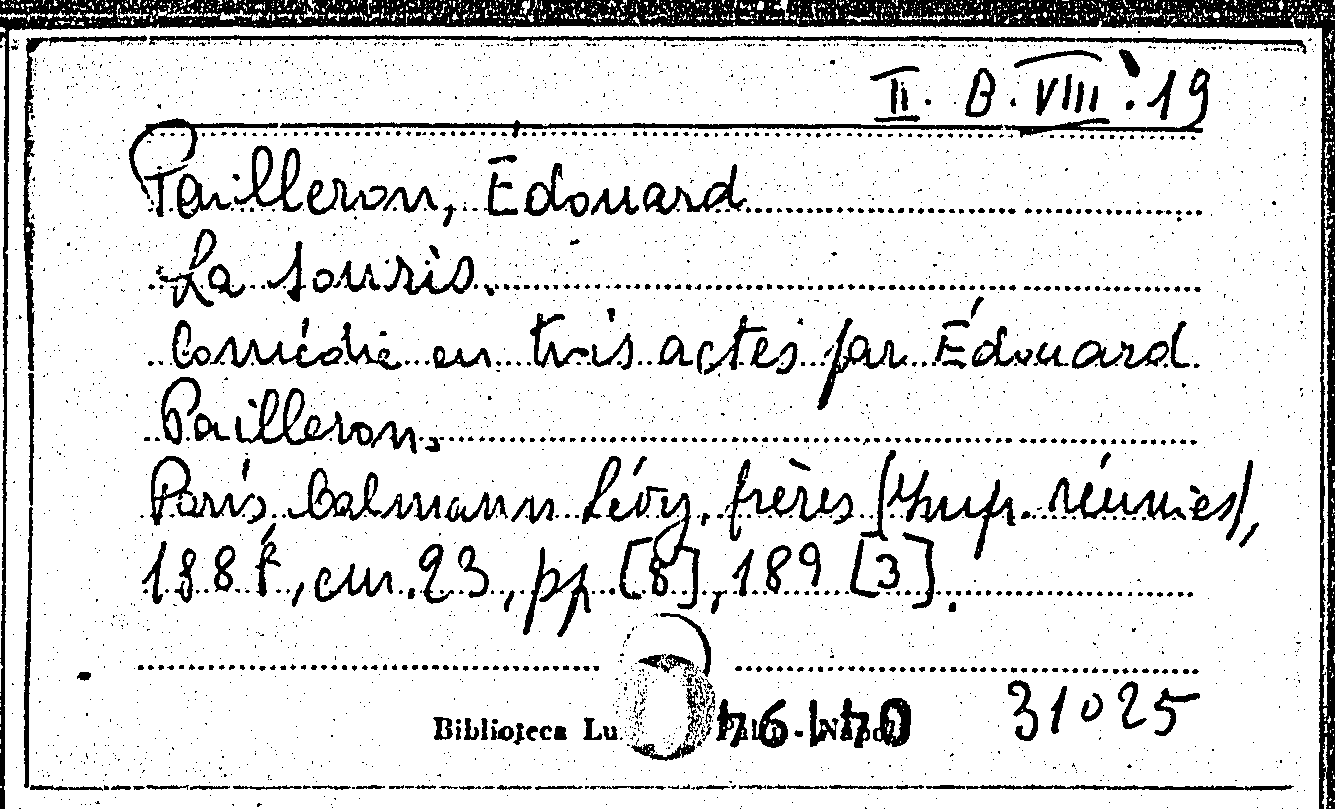 II. B. VIII. 19
Pailleron, Édouard
La Souris.
Comédie en trois actes par Édouard
Pailleron.
Paris, Calmann Lévy, frères (Imp. réunies),
1887, cm. 23, pp. [8], 189 [3].
Biblioteca Lu
31025